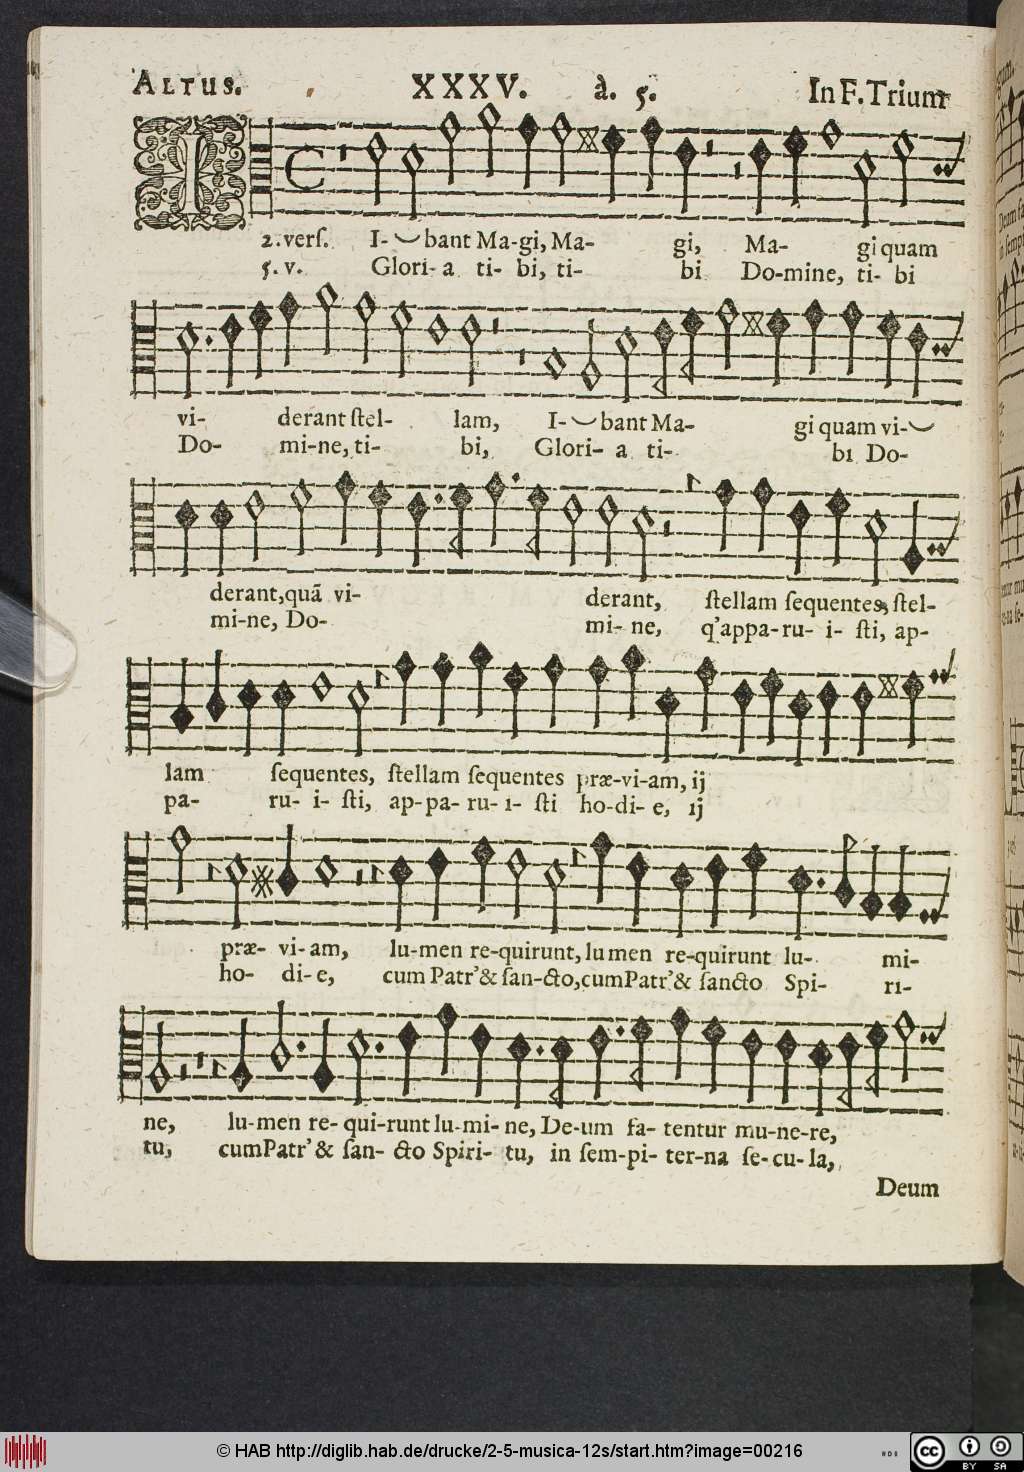 ALTUS. XXXV. à. 5. In F. Trium
2. verſ. I- bant Ma-gi, Ma- gi, Ma- gi quam
5. v. Glori- a ti- bi, ti- bi Do-mine, ti- bi
vi- derant ſtel- lam, I- bant Ma- gi quam vi-
Do- mi-ne, ti- bi, Glori- a ti- bi Do-
derant, quã vi- derant, ſtellam ſequentes, ſtel-
mi-ne, Do- mi- ne, q'appa-ru- i- ſti, ap-
lam ſequentes, ſtellam ſequentes præ-vi-am, ij
pa- ru- i- ſti, ap-pa- ru- i- ſti ho-di- e, ij
præ- vi- am, lu-men re-quirunt, lu men re-quirunt lu- mi-
ho- di- e, cum Patr' & ſan-cto, cum Patr' & ſancto Spi- ri-
ne, lu-men re- qui-runt lu-mi- ne, De-um fa- tentur mu-ne-re,
tu, cum Patr' & ſan- cto Spiri- tu, in ſem-pi- ter-na ſe-cu-la,
Deum
© HAB http://diglib.hab.de/drucke/2-5-musica-12s/start.htm?image=00216
cc BY SA